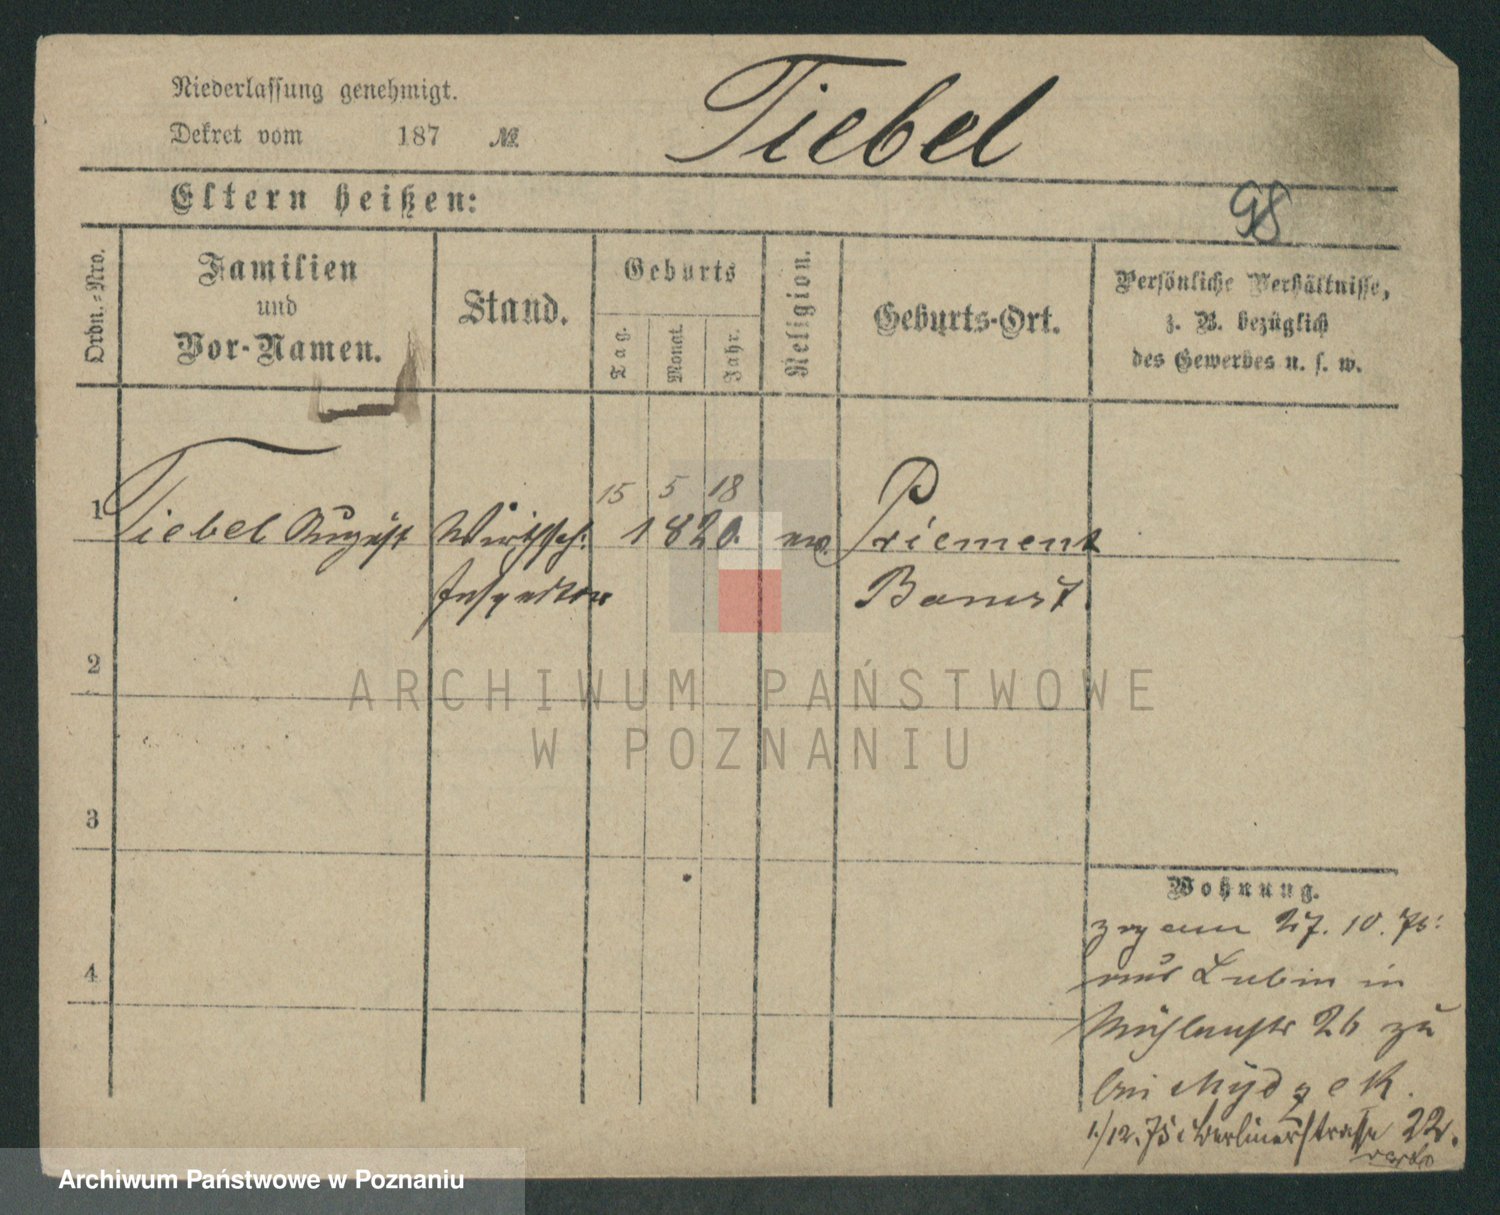 Niederlassung genehmigt.
Tiebel
Dekret vom 187 №
Eltern heißen:
98
Ordn.-Nro.
Familien
und
Vor-Namen.
Stand.
Geburts
Tag.
Monat.
Jahr.
Religion.
Geburts-Ort.
Persönliche Verhältnisse,
z. B. bezüglich
des Gewerbes u. s. w.
15 5 18
1 Tiebel August Wirthsch: 1820. ev. Priement
Inspektor Bomst.
2
3
4
Wohnung.
zog am 27. 10. 75:
aus Lubin in
Mühlenstr 26 zu
bei Mydzek.
1/12. 75 Berlinerstrasse 22.
ARCHIWUM PAŃSTWOWE
W POZNANIU
Archiwum Państwowe w Poznaniu